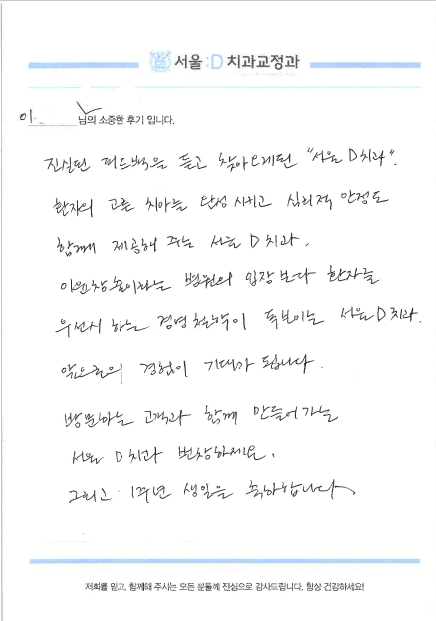 서울:D치과교정과
이. 님의 소중한 후기 입니다.
진실된 피드백을 듣고 찾아오게된 "서울 D치과".
환자의 고른 치아를 완성 시키고 심리적 안정도
함께 제공해 주는 서울 D치과.
이윤창출이라는 병원의 입장보다 환자를
우선시 하는 경영철학이 돋보이는 서울D치과.
앞으로의 경험이 기대가 됩니다.
방문하는 고객과 함께 만들어가는
서울 D치과 번창하세요.
그리고 1주년 생일을 축하합니다.
저희를 믿고, 함께해 주시는 모든 분들께 진심으로 감사드립니다. 항상 건강하세요!